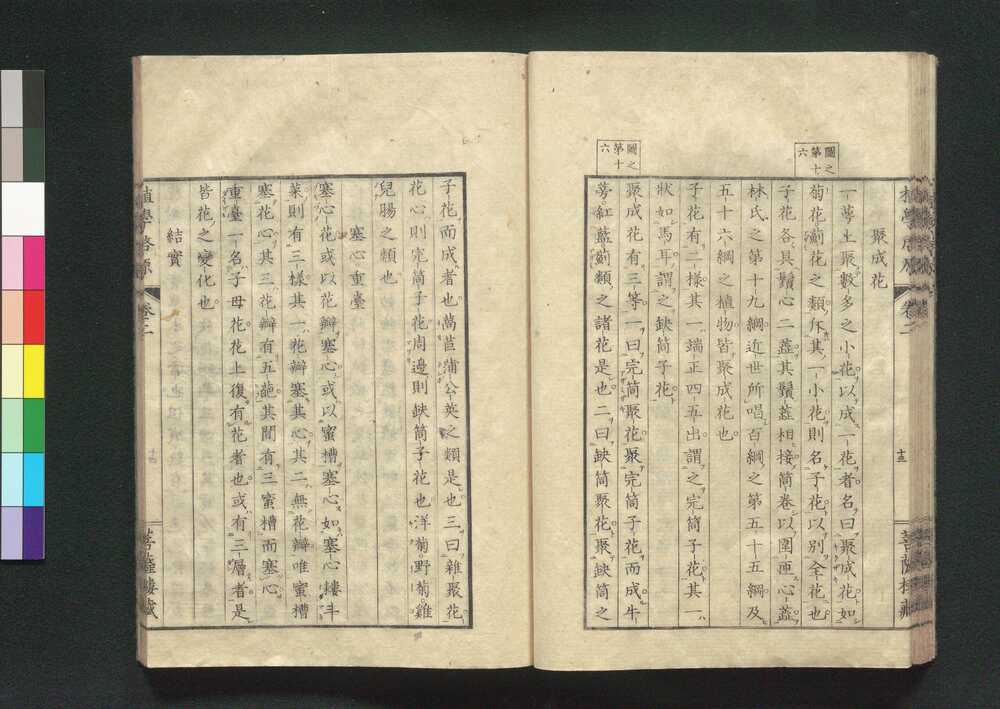 聚成花
圖之
第十
七
一蕚上聚數多之小花以成一花者名曰聚成花如
菊花薊花之類斥其一小花則名子花以別全花也
子花各具鬚心二蕋其鬚蕋相接筒卷以圍匝心蕋
林氏之第十九綱近世所唱百綱之第五十五綱及
五十六綱之植物皆聚成花也
子花有二樣其一端正四五出謂之完筒子花其一
狀如馬耳謂之缺筒子花
圖之
第十
六
聚成花有三等一曰完筒聚花聚完筒子花而成牛
蒡紅藍薊類之諸花是也二曰缺筒聚花聚缺筒之
十三
菩薩樓藏
子花而成者也萵苣蒲公英之類是也三曰雜聚花
花心則完筒子花周邊則缺筒子花也洋菊野菊雞
兒腸之類也
塞心重臺
塞心花或以花瓣塞心或以蜜槽塞心如塞心樓斗
菜則有三樣其一花瓣塞其心其二無花瓣唯蜜槽
塞花心其三花瓣有五葩其間有三蜜槽而塞心
重臺一名子母花花上復有花者也或有三層者是
皆花之變化也
結實
植學啓原
卷二
十三
菩薩樓藏